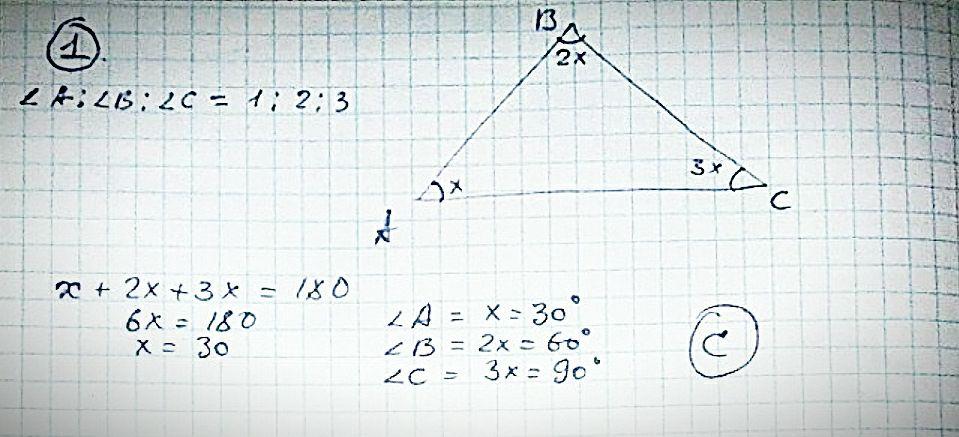 1.
∠A:∠B:∠C = 1:2:3
B
2x
x
3x
A
C
x + 2x + 3x = 180
6x = 180
x = 30
∠A = x = 30°
∠B = 2x = 60°
∠C = 3x = 90°
C